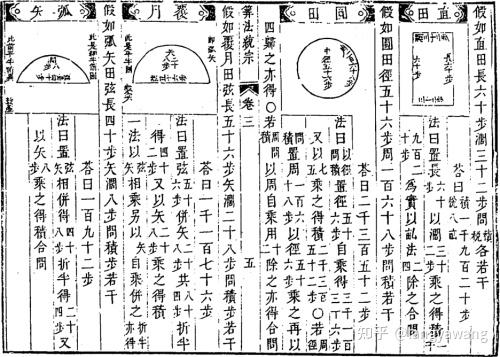 直田
長六十步
假如直田長六十步濶三十二步問積稅各若干
答曰積一千九百二十步 稅八畝
法曰置長六十步以濶三十二步乘之得積一千
九百二十步爲實以畝法二四除之合問
圓田
中徑五十六步
假如圓田徑五十六步周一百六十八步問積若干
答曰二千三百五十二步
法曰以徑問積置徑五十六步自乘得三千一百三十六步
又以七五乘之得二千三百五十二步〇若徑
周問積置周一百六十八步以徑五十六步乘之再以
四歸之亦得〇若以周問積以周自乘用十二除之亦得積合問
算法統宗 卷三 五
覆月
假如覆月田弦長五十六步矢濶二十八步問積步若干
答曰一千一百七十六步
法曰置弦五十六步併矢二十八步共八十四步折半
得四十二步又以矢二十八步乘之得積
一法以弦矢相乘另以矢自乘併之折半亦得
弧矢
假如弧矢田弦長四十步矢濶八步問積步若干
答曰一百九十二步
法曰置弦矢相併得四十八步折半得二十四步又
以矢八步乘之得積合問
知乎